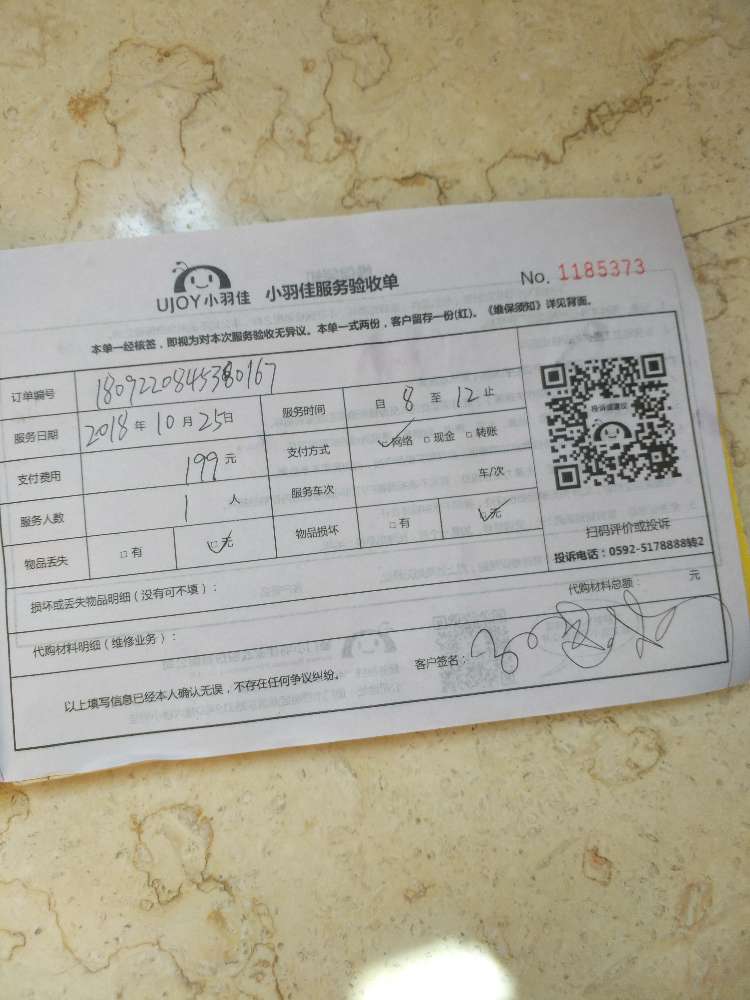 UJOY小羽佳 小羽佳服务验收单 No. 1185373
本单一经核签，即视为对本次服务验收无异议。本单一式两份，客户留存一份(红)。《维保须知》详见背面。
订单编号 1809220845380167
服务日期 2018年10月25日 服务时间 自 8 至 12 止
支付费用 199元 支付方式 ☑网络 □现金 □转账
服务人数 1 人 服务车次 车/次
物品丢失 □有 ☑无 物品损坏 □有 ☑无
投诉或建议
扫码评价或投诉
投诉电话：0592-5178888转2
损坏或丢失物品明细（没有可不填）：
代购材料明细（维修业务）： 代购材料总额： 元
以上填写信息已经本人确认无误，不存在任何争议纠纷。 客户签名：